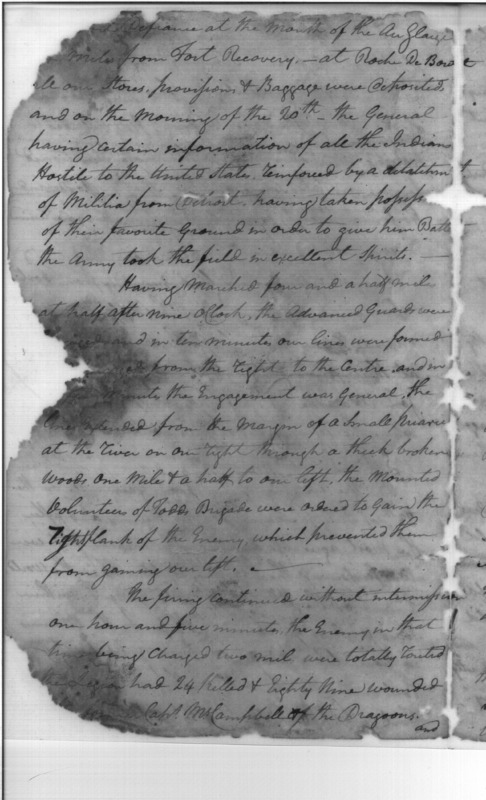 Defiance at the Mouth of the Au Glaize
from Fort Recovery. — at Roche De Bout
all our Stores, provisions & Baggage were deposited
and on the Morning of the 20th the General
having Certain information of all the Indians
Hostile to the United States, reinforced by a detatchment
of Militia from Detroit, having taken possess
of their favorite Ground in order to give him Battle
the Army took the field in excellent Spirits. —
Having Marched four and a half mile
at half after nine oClock, the Advanced Guards were
and in ten minutes our lines were formed
from the right to the Centre, and in
minutes the Engagement was General, the
line extended from the margin of a Small Priarie
at the River on our right through a thick broken
woods one Mile & a half to our left, the Mounted
Volunteers of Todds Brigade were ordered to Gain the
right flank of the Enemy, which prevented them
from gaining our left. —
The firing continued without intermission
one hour and five minutes, the Enemy in that
time being Charged two mil were totally routed
the Legion had 24 Killed & Eighty Nine wounded
Capt McCampbell of the Dragoons.
and